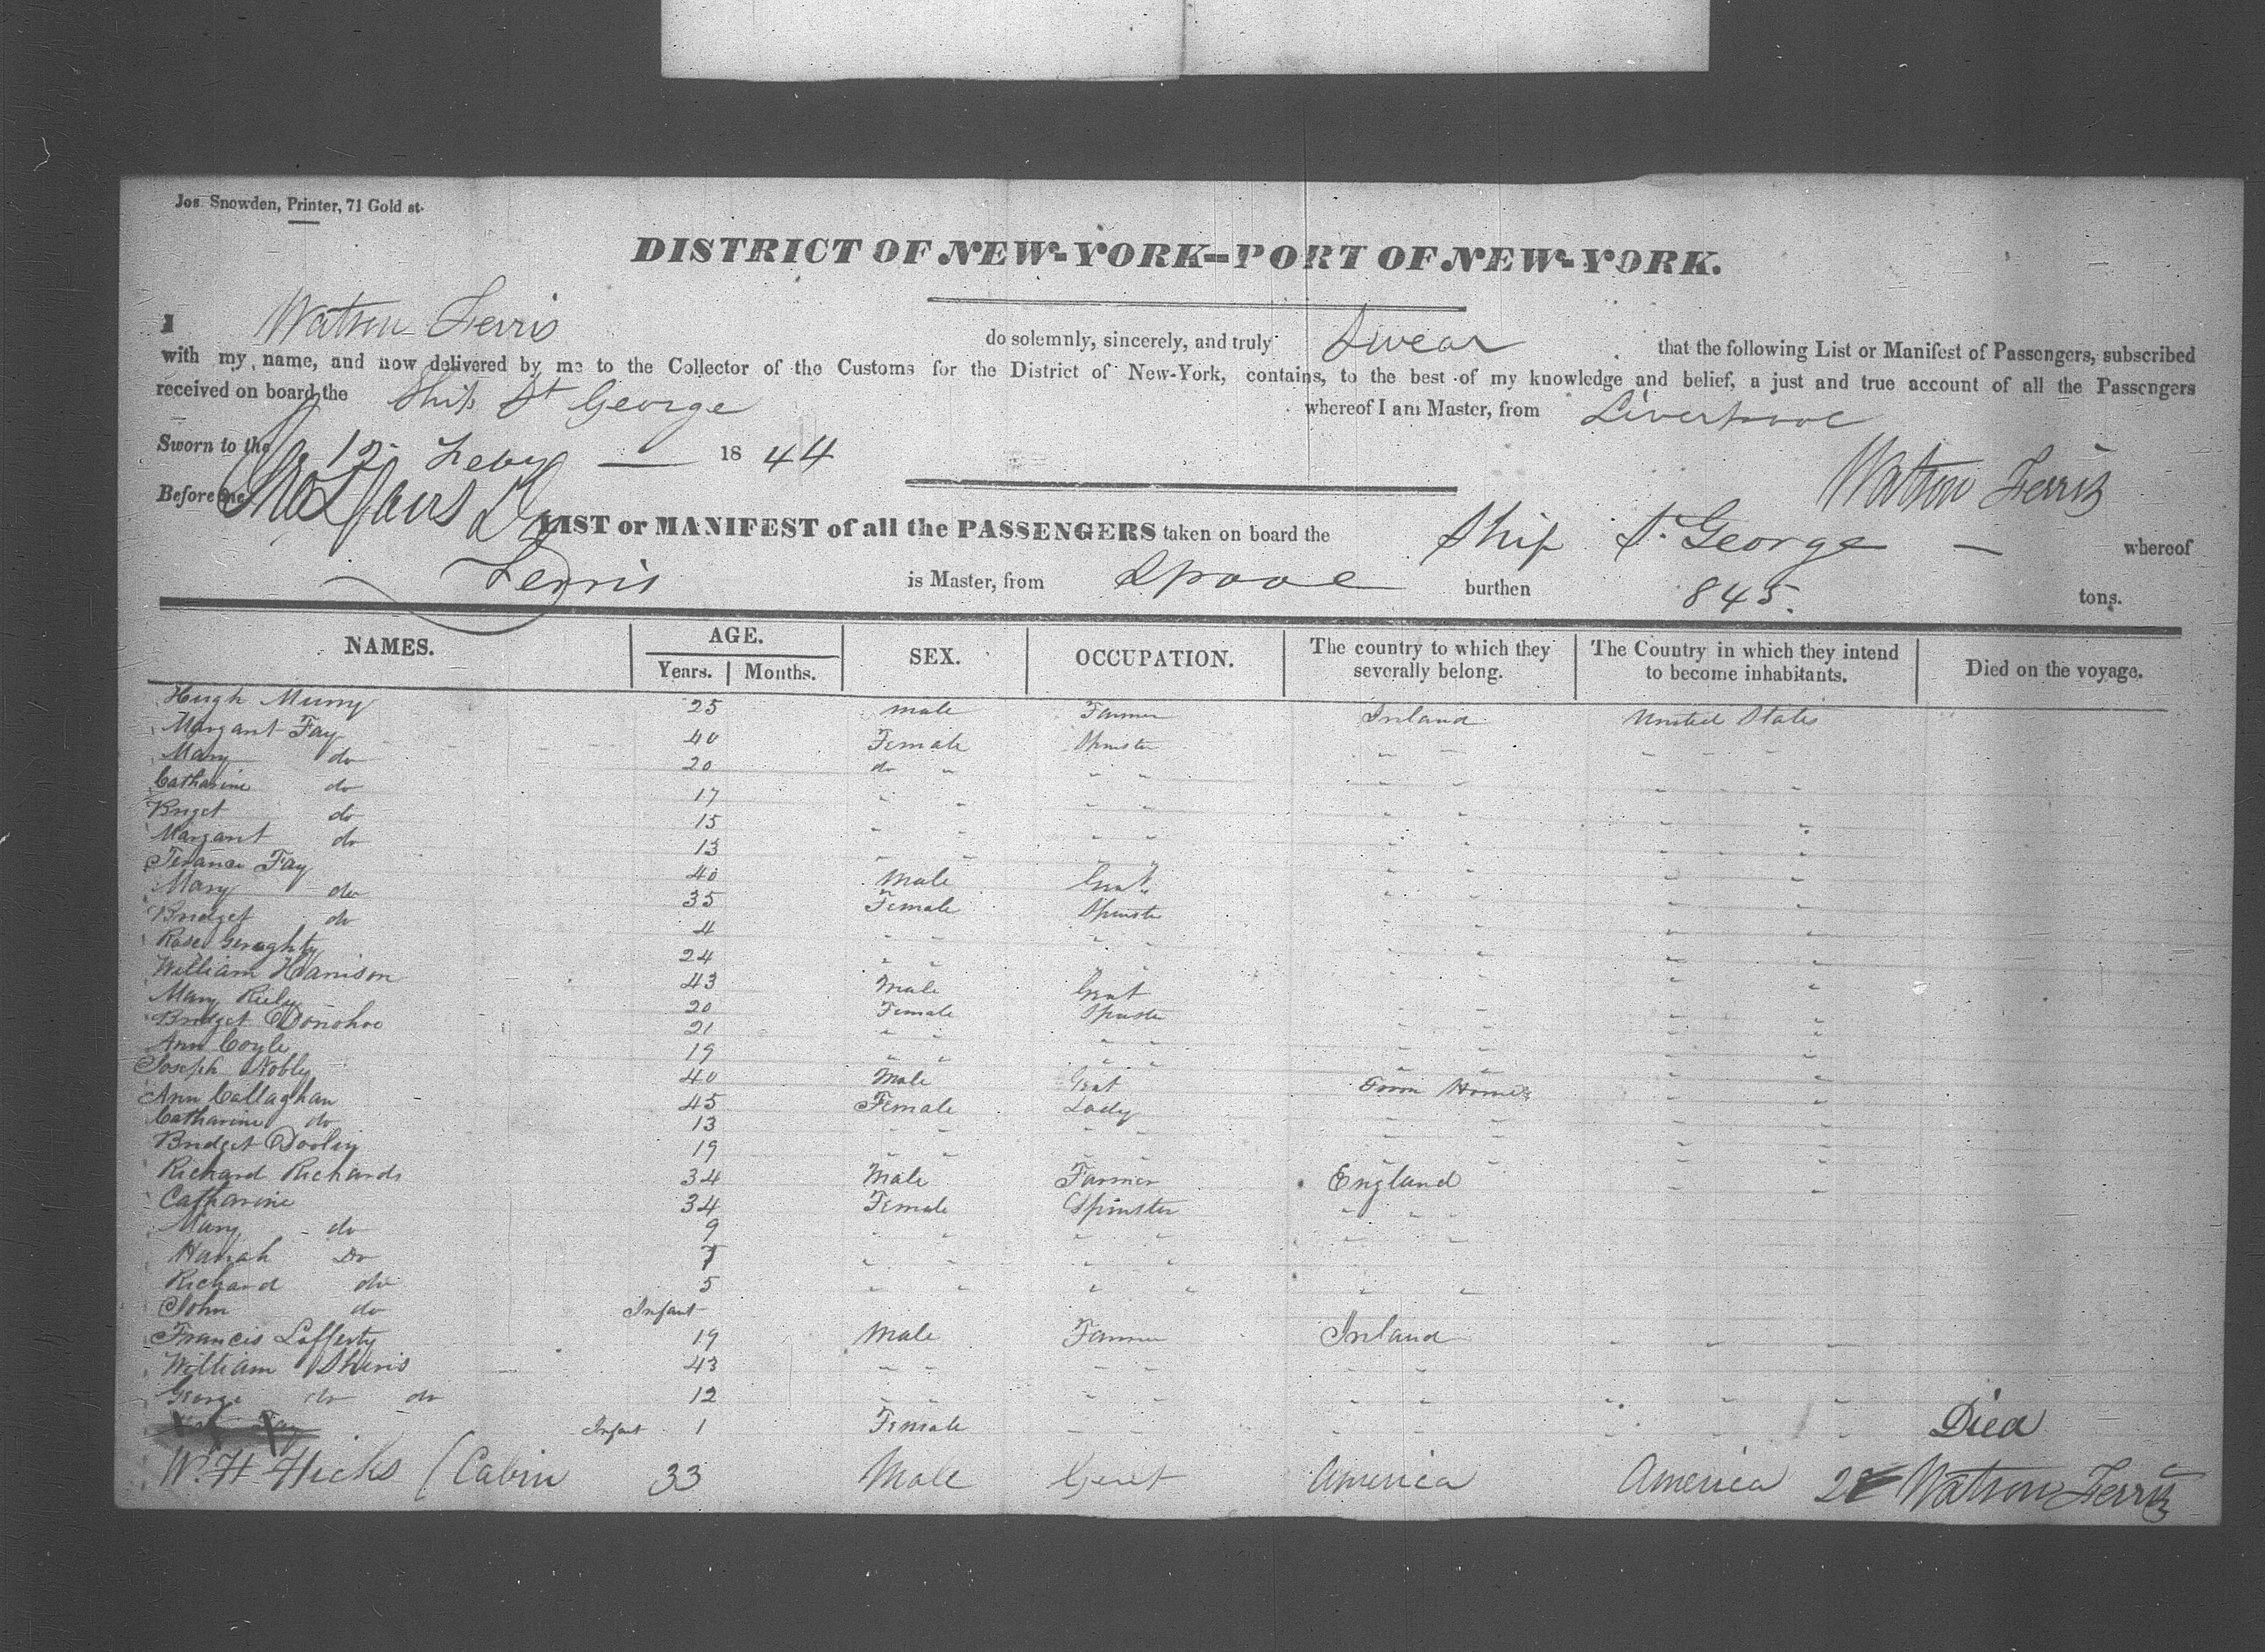 Jos. Snowden, Printer, 71 Gold st.
DISTRICT OF NEW-YORK--PORT OF NEW-YORK.
I Watson Ferris do solemnly, sincerely, and truly Swear that the following List or Manifest of Passengers, subscribed
with my name, and now delivered by me to the Collector of the Customs for the District of New-York, contains, to the best of my knowledge and belief, a just and true account of all the Passengers
received on board the Ship St George whereof I am Master, from Liverpool
Sworn to the 12 Feby 1844
Watson Ferris
Before me
LIST or MANIFEST of all the PASSENGERS taken on board the Ship St. George — whereof
Ferris is Master, from Lpool burthen 845. tons.
NAMES. AGE. Years. Months. SEX. OCCUPATION. The country to which they severally belong. The Country in which they intend to become inhabitants. Died on the voyage.
Hugh Murry 25 male Farmer Ireland United States
Margaret Fay 40 Female Spinster " " " "
Mary do 20 do " " " " " " "
Catharine do 17 " " " " " " " "
Briget do 15 " " " " " " " "
Margaret do 13 " " " " " " " "
Terance Fay 40 Male Gent " " " "
Mary do 35 Female Spinster " " " "
Bridget do 4 " " " " " " " "
Rose Geraghty 24 " " " " " " " "
William Harrison 43 Male Gent " "
Mary Riely 20 Female Spinster " " " "
Bridget Donohoe 21 " " " " " " " "
Ann Coyle 19 " " " " " " " "
Joseph Nobly 40 Male Gent From " "
Ann Callaghan 45 Female Lady " " " "
Catharine do 13 " " " " " " " "
Bridget Dooley 19 " " " " " " " "
Richard Richards 34 Male Farmer England " "
Catharine 34 Female Spinster " " "
Mary do 9 " " " " " " "
Hanah Do 7 " " " "
Richard do 5 " " " " " "
John do Infant
Francis Lafferty 19 Male Farmer Ireland " " "
William 43 " " " " " " " " "
George do do 12 " " " " " " " " "
Fay Infant 1 Female " " " " " " " Died
W. H Hicks (Cabin 33 Male Gent America America Watson Ferris